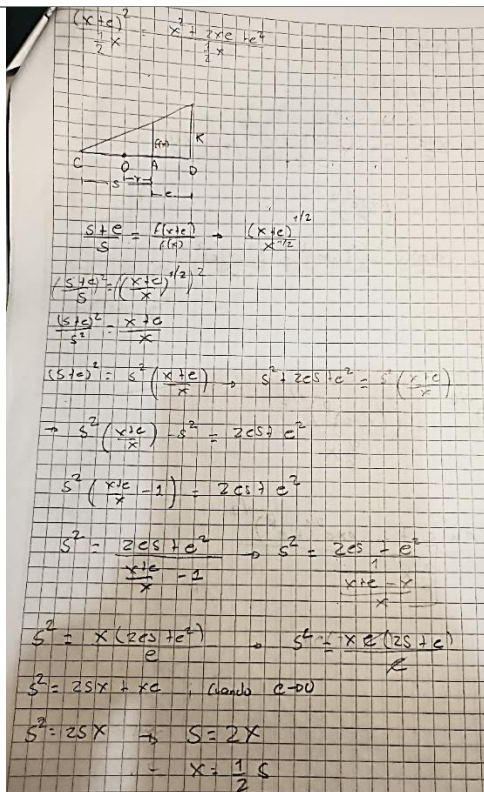 (x+e)² / ½x = x² + 2xe + e² / ½x
f(x) K
C O A D
S x
e
s+e / s = f(x+e) / f(x) → (x+e)^1/2 / x^1/2
(s+e / s)² = ((x+e / x)^1/2)²
(s+e)² / s² = x+e / x
(s+e)² = s² (x+e / x) → s² + 2es + e² = s² (x+e / x)
→ s² (x+e / x) - s² = 2es + e²
s² (x+e / x - 1) = 2es + e²
s² = 2es + e² / (x+e / x - 1) → s² = 2es + e² / (x+e - x / x)
s² = x(2es + e²) / e → s² = x e (2s + e) / e
s² = 2sx + xe , cuando e→0
s² = 2sx → s = 2x
- x = 1/2 s